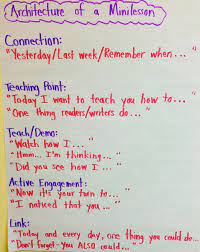 Architecture of a Minilesson
Connection:
"Yesterday/Last week/Remember when..."
Teaching Point:
"Today I want to teach you how to..."
"One thing readers/writers do..."
Teach/Demo:
"Watch how I..."
"Hmm... I'm thinking..."
"Did you see how I..."
Active Engagement:
"Now it's your turn to..."
"I noticed that you..."
Link:
"Today and every day, one thing you could do..."
"Don't forget-you ALSO could..."